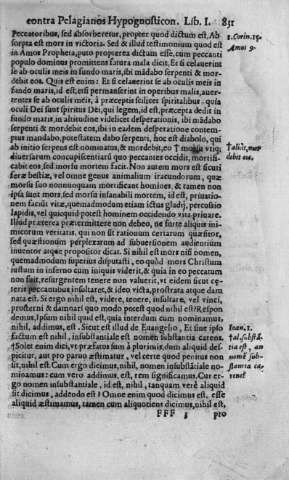 contra Pelagianos Hypognosticon. Lib. I. 831
Peccatoribus, sed absorberetur, propter quod dictum est. Ab
sorpta est mors in victoria. Sed & illud testimonium quod est
in Amos Propheta, puto propterea dictum esse, cum peccanti
populo dominus promittens futura mala dicit. Et si celauerint
se ab oculis meis in fundo maris, ibi mādabo serpenti & mor-
debit eos. Quis est enim: Et si celauerint se ab oculis meis in
fundo maris, id est, si permanserint in operibus malis, auer-
rentes se ab oculis meis, à præceptis scilicet spiritalibus. quia
oculi Dei sunt spiritus Dei, qui legem, id est, præcepta dedit in
fundo maris, in altitudine videlicet desperationis, ibi mādabo
serpenti & mordebit eos, ibi in eadem desperatione contem-
ptus mandabo, potestatem dabo serpenti, hoc est diabolo, qui
ab initio serpens est nominatus, & mordebit, eo
diuersarum concupiscentiarū quo peccantes occidit, mortifi-
cabit eos, sed morsu mortem facit. Non autem mors est sicuti
feræ bestiæ, vel omne genus animalium iracundorum, quæ
morsu suo nonnunquam mortificant homines, & tamen non
ipsa sunt mors, sed morsu insanabili mortem, id est, priuatio-
nem facitis vitæ, quemadmodum etiam ictus gladij, percussio
lapidis, vel quicquid potest hominem occidendo vita priuare.
Illud præterea prætermittere non debeo, ne forte aliquis ini-
micorum veritatis, qui non sit rationum certarum quæsitor,
sed quæstionum perplexarum ad subuersionem audientium
inuentor atque propositor dicat. Si nihil est mors nisi nomen,
quemadmodum superius disputasti, eo quòd mors Christum
iustum in inferno cum iniquis viderit, & quia in eo peccatum
non fuit, resurgentem tenere non valuerit, vt eidem sicut ce-
teris peccatoribus insultaret, & ideo victa, prostrata atque dam
nata est. Si ergo nihil est, videre, tenere, insultare, vel vinci,
prosterni & damnari quo modo potest quod nihil est? Respon
demus, Ipsum nihil quid est, quia interdum cum nominamus,
nihil, addimus, est. Sicut est illud de Euangelio, Et sine ipso
factum est nihil, insubstantiale est nomen substantia carens.
† Solet enim dici, vt præsumptum sum à plurimis, cum aliquid des-
picitur, aut pro paruo æstimatur, vel certe quod penitus non
sit, nihil est. Cum ergo dicimus, nihil, nomen insubstātiale no-
minamus: cum vero addimus, est, rem significamus. Cur er-
go nomen insubstantiale, id est, nihil, tanquam verè aliquid
sit dicimus, addendo est? Omne enim quod dicimus est, esse
aliquid æstimamus, tamen cum aliquotiens dicimus, nihil est,
FFF 3 pro
1. Corin. 15.
Amos 9.
debit eos.
Ioan. 1.